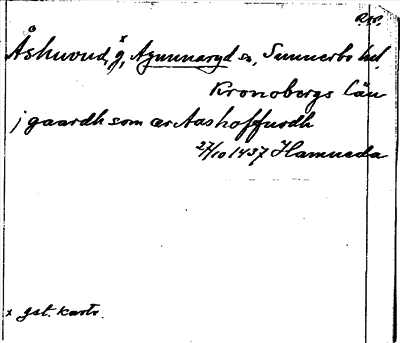 Åshuvud, g, Agunnaryd sn, Sunnerbo hd
Kronobergs län
j gaardh som ær Aashoffuodh
27/10 1437 Hamneda
x gst. karta.